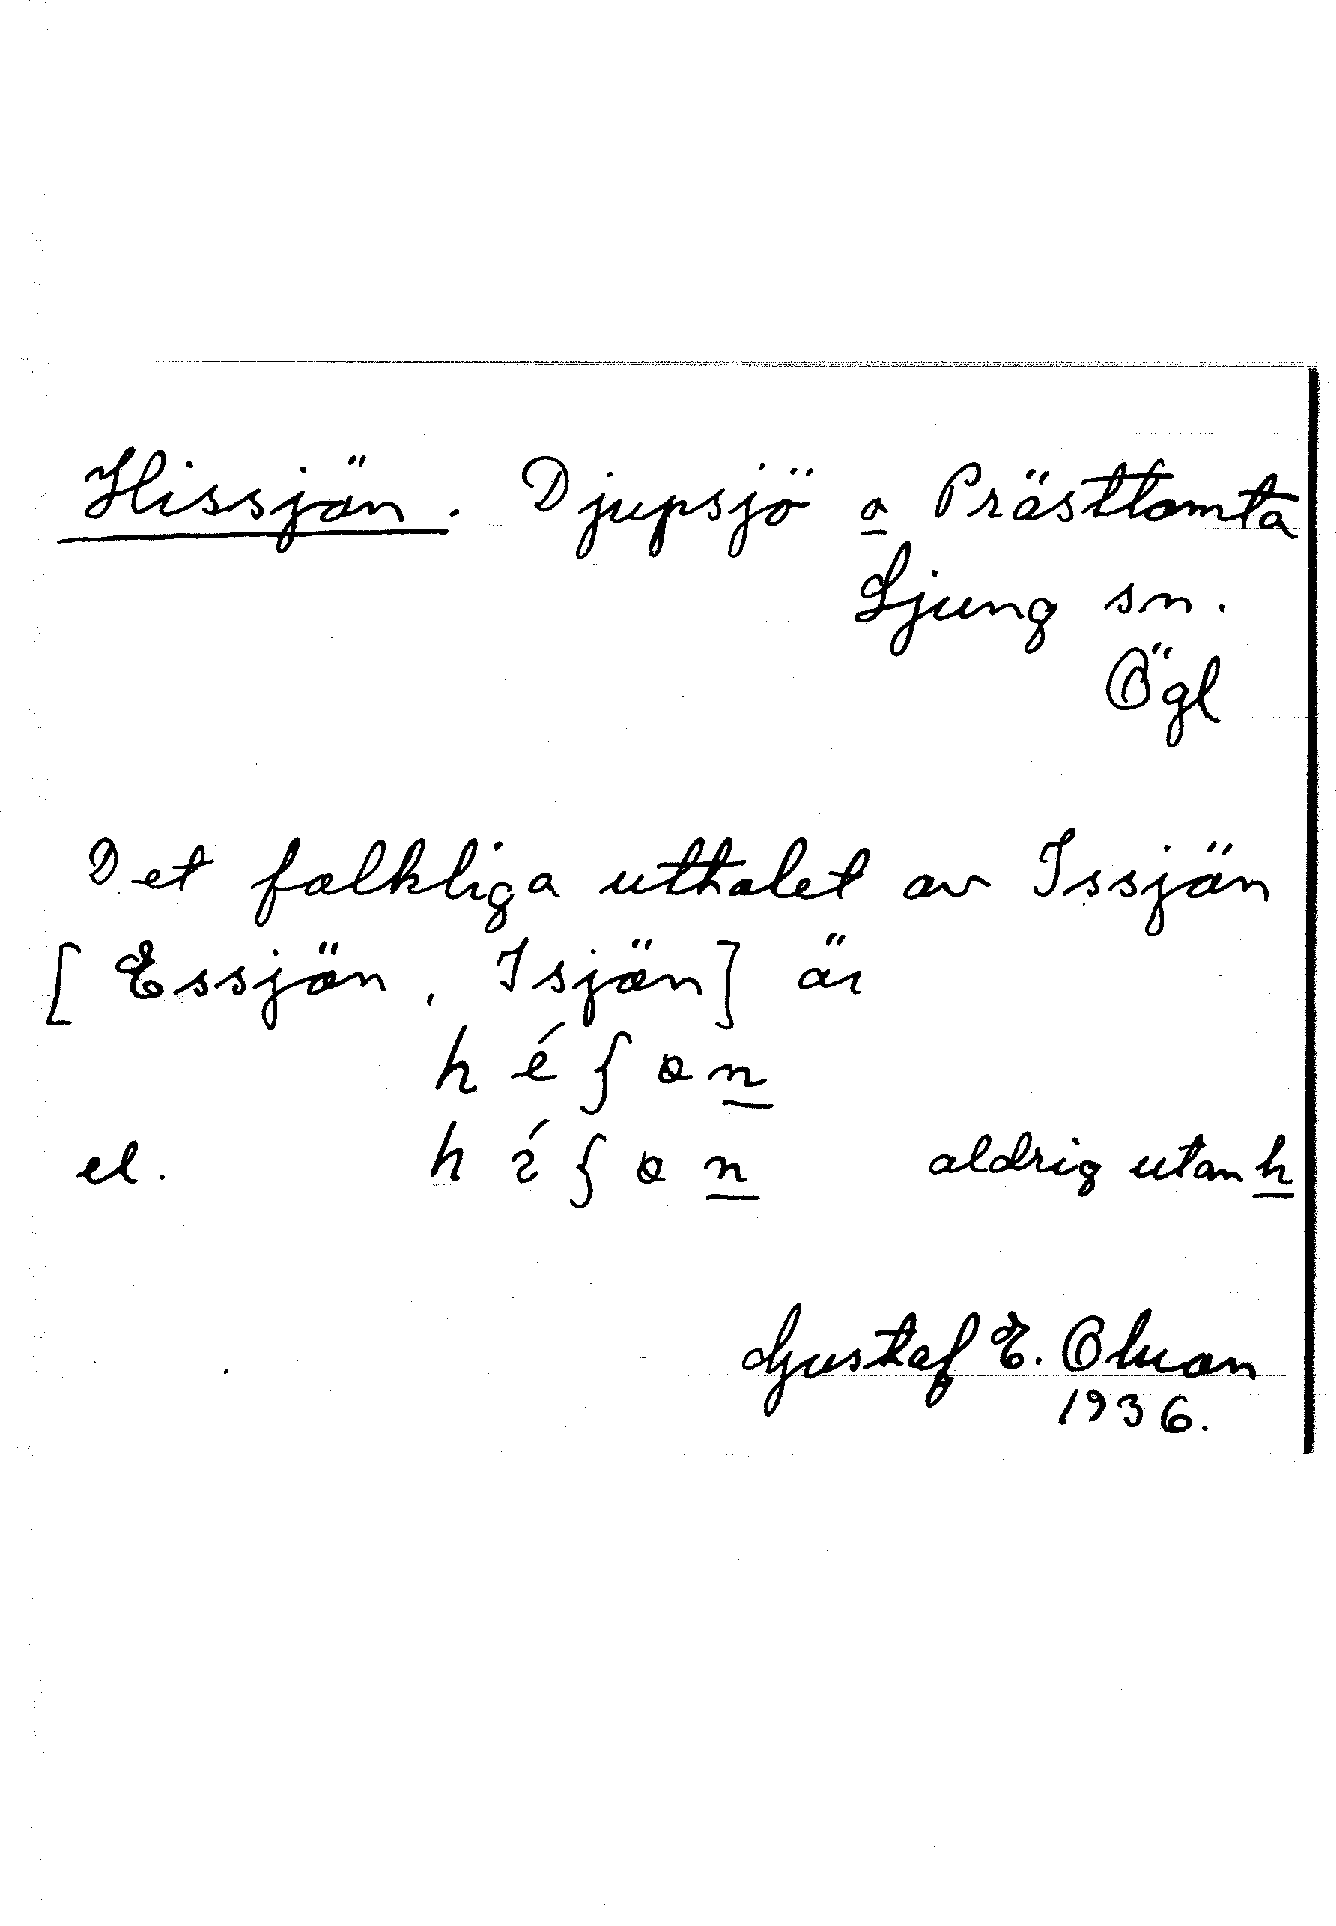 Hissjön. Djupsjö o Prästtomta
Ljung sn.
Ögl
Det folkliga uthalet av Issjön
[Essjön, Isjön] är
h é ʃ ɵ n
el. h í ʃ ɵ n aldrig utan h
Gustaf E. Olson
1936.